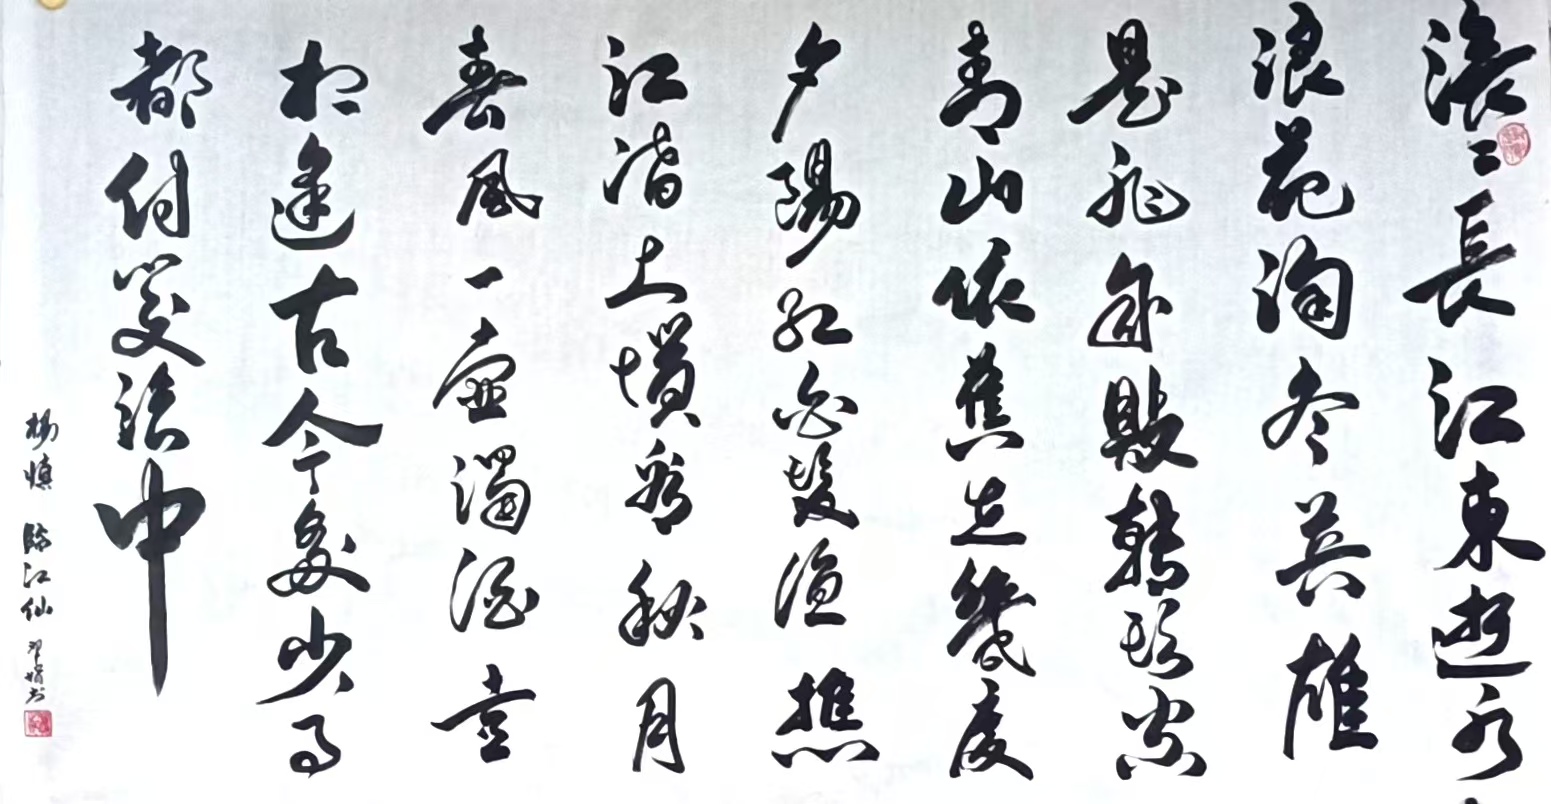 滚〻長江東逝水
浪花淘尽英雄
是非成敗轉頭空
青山依舊在幾度
夕陽紅白髮漁樵
江渚上慣看秋月
春風一壺濁酒喜
相逢古今多少事
都付笑談中
楊慎 臨江仙 书